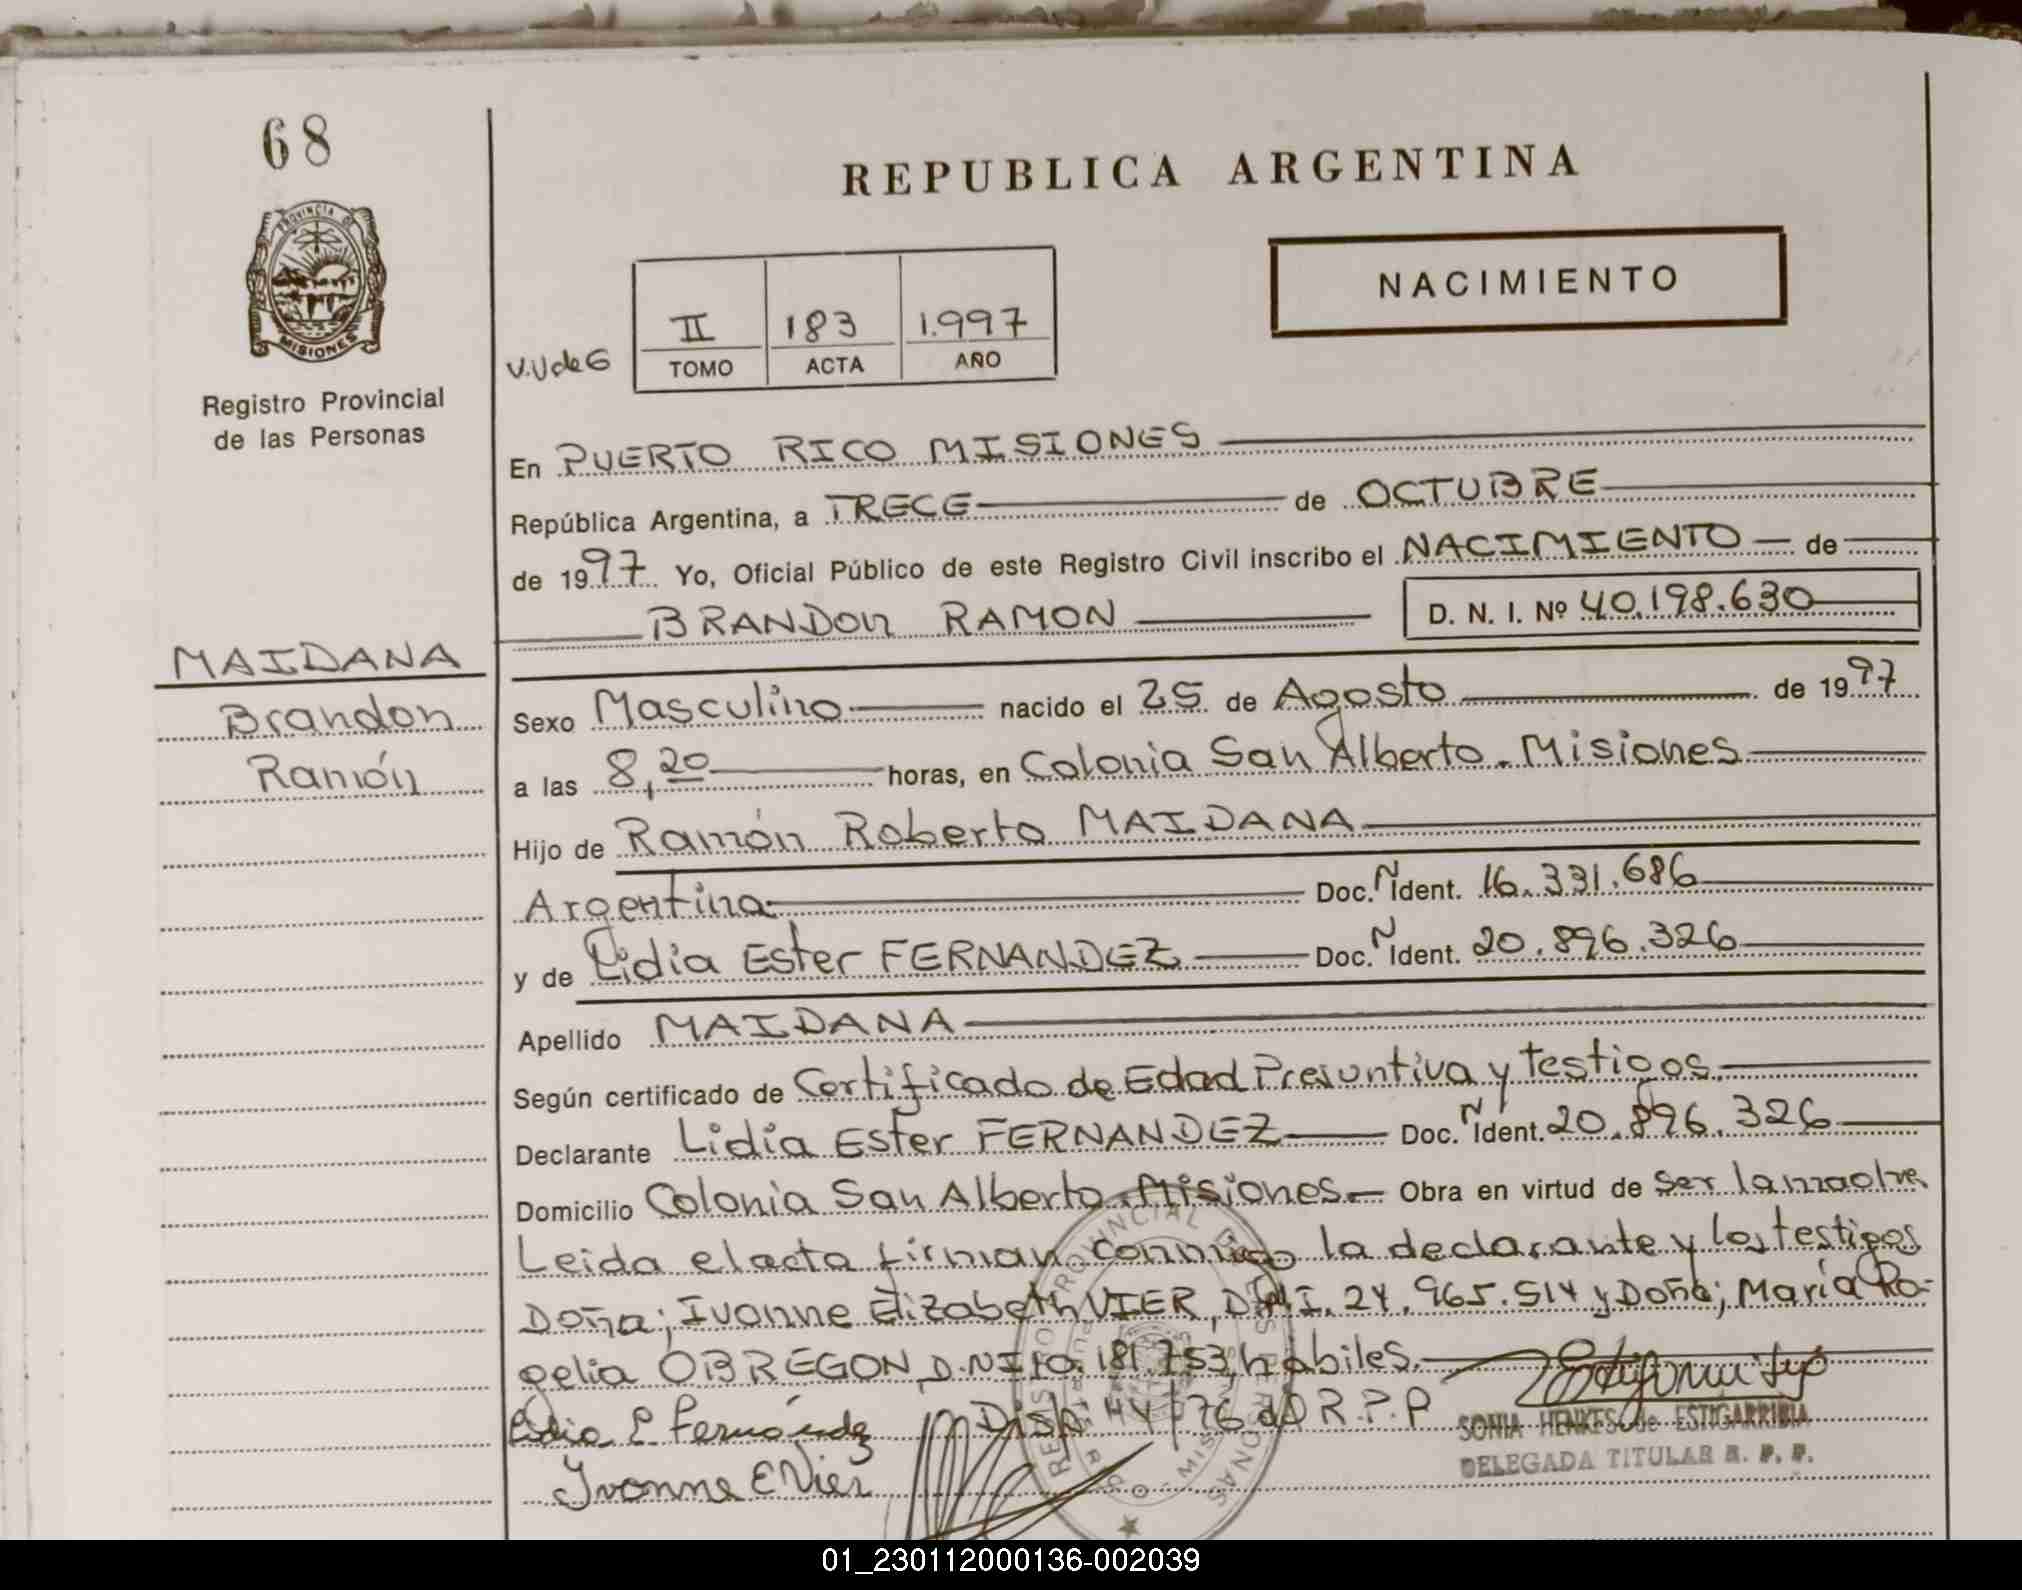 68
REPUBLICA ARGENTINA
PROVINCIA DE
MISIONES
Registro Provincial
de las Personas
NACIMIENTO
V.V de G
II 183 1.997
TOMO ACTA AÑO
En PUERTO RICO MISIONES
República Argentina, a TRECE de OCTUBRE
de 1997 Yo, Oficial Público de este Registro Civil inscribo el NACIMIENTO de
BRANDON RAMON D. N. I. Nº 40.198.630
MAIDANA
Brandon
Ramón
Sexo Masculino nacido el 25 de Agosto de 1997
a las 8,20 horas, en Colonia San Alberto. Misiones
Hijo de Ramón Roberto MAIDANA
Argentina Doc. N Ident. 16.331.686
y de Lidia Ester FERNANDEZ Doc. N Ident. 20.896.326
Apellido MAIDANA
Según certificado de Certificado de Edad Presuntiva y testigos.
Declarante Lidia Ester FERNANDEZ Doc. N Ident. 20.896.326
Domicilio Colonia San Alberto. Misiones. Obra en virtud de ser la madre
Leida el acta firman conmigo la declarante y los testigos
Doña; Ivonne Elizabeth VIER, D.N.I. 24.965.514 y Doña; María Ro-
gelia OBREGON, D.N.I 10.181.753, hábiles.
Disp. 44/76 d D R.P.P
Lidia E Fernández
Ivonne E Vier
SONIA HENKES de ESTIGARRIBIA
DELEGADA TITULAR R. P. P.
REGISTRO PROVINCIAL DE LAS PERSONAS
01_230112000136-002039